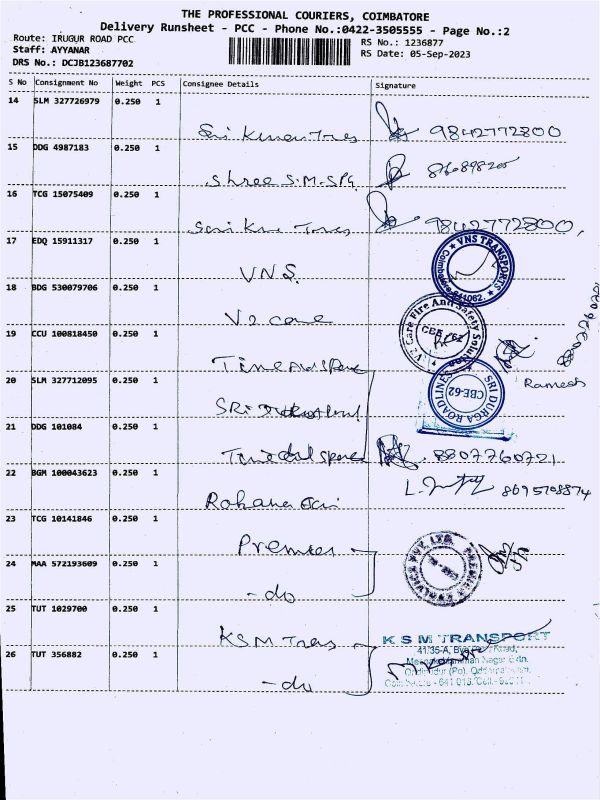 THE PROFESSIONAL COURIERS, COIMBATORE
Delivery Runsheet - PCC - Phone No.:0422-3505555 - Page No.:2
Route: IRUGUR ROAD PCC
Staff: AYYANAR
DRS No.: DCJB123687702
RS No.: 1236877
RS Date: 05-Sep-2023
S No Consignment No Weight PCS Consignee Details Signature
14 SLM 327726979 0.250 1
9842772800
15 DDG 4987183 0.250 1
Shree S.M.SPG
16 TCG 15075409 0.250 1
9842772800,
17 EDQ 15911317 0.250 1
VNS.
VNS TRANSPORTS
Coimbatore 641062.
18 BDG 530079706 0.250 1
V2 care
V2 Care Fire And Safety Solution
CBE-62
19 CCU 100818450 0.250 1
Ramesh
20 SLM 327712095 0.250 1
SRI
SRI DURGA ROADLINES
CBE-62
21 DDG 101084 0.250 1
8807760721
22 BGM 100043623 0.250 1
Rohana
8695708874
23 TCG 10141846 0.250 1
Premier
24 MAA 572193609 0.250 1
-do
25 TUT 1029700 0.250 1
KSM Trans
K S M TRANSPORT
41/35-A,
26 TUT 356882 0.250 1
-do